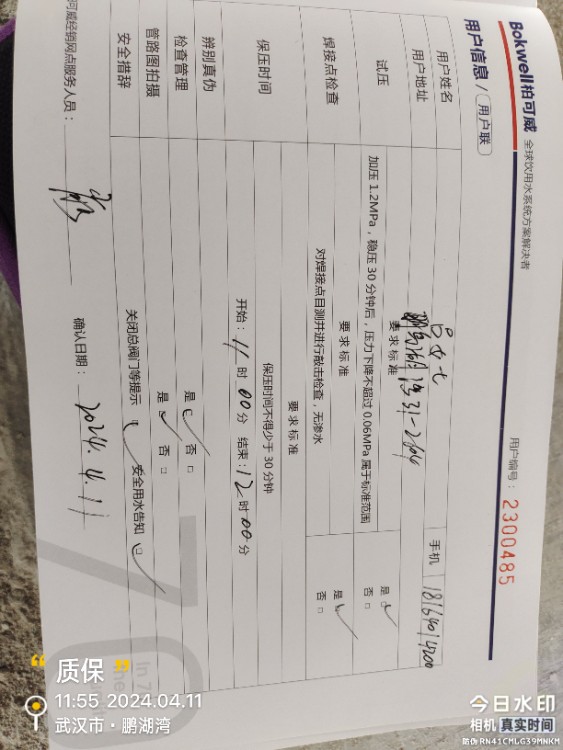 Bokwell柏可威 全球饮用水系统方案解决者
用户信息 / 用户联
用户编号： 2300485
用户姓名 吕女士 手机 18164014200
用户地址 鹏湖湾31-2604
试压 要求标准
加压 1.2MPa，稳压 30 分钟后，压力下降不超过 0.06MPa 属于标准范围 是□ 否□
焊接点检查 要求标准
对焊接点目测并进行敲击检查，无渗水 是□ 否□
保压时间 要求标准
保压时间不得少于 30 分钟
开始：11 时 00 分 结束：12 时 00 分
辨别真伪 是□ 否□
检查管理 是□ 否□
管路图拍摄
安全措辞 关闭总阀门等提示 □ 安全用水告知 □
可威经销网点服务人员： 确认日期： 2024.4.11
In 7
the
“质保”
11:55 2024.04.11
武汉市·鹏湖湾
今日水印
相机 真实时间
防伪 RN41CMLG39MNKM